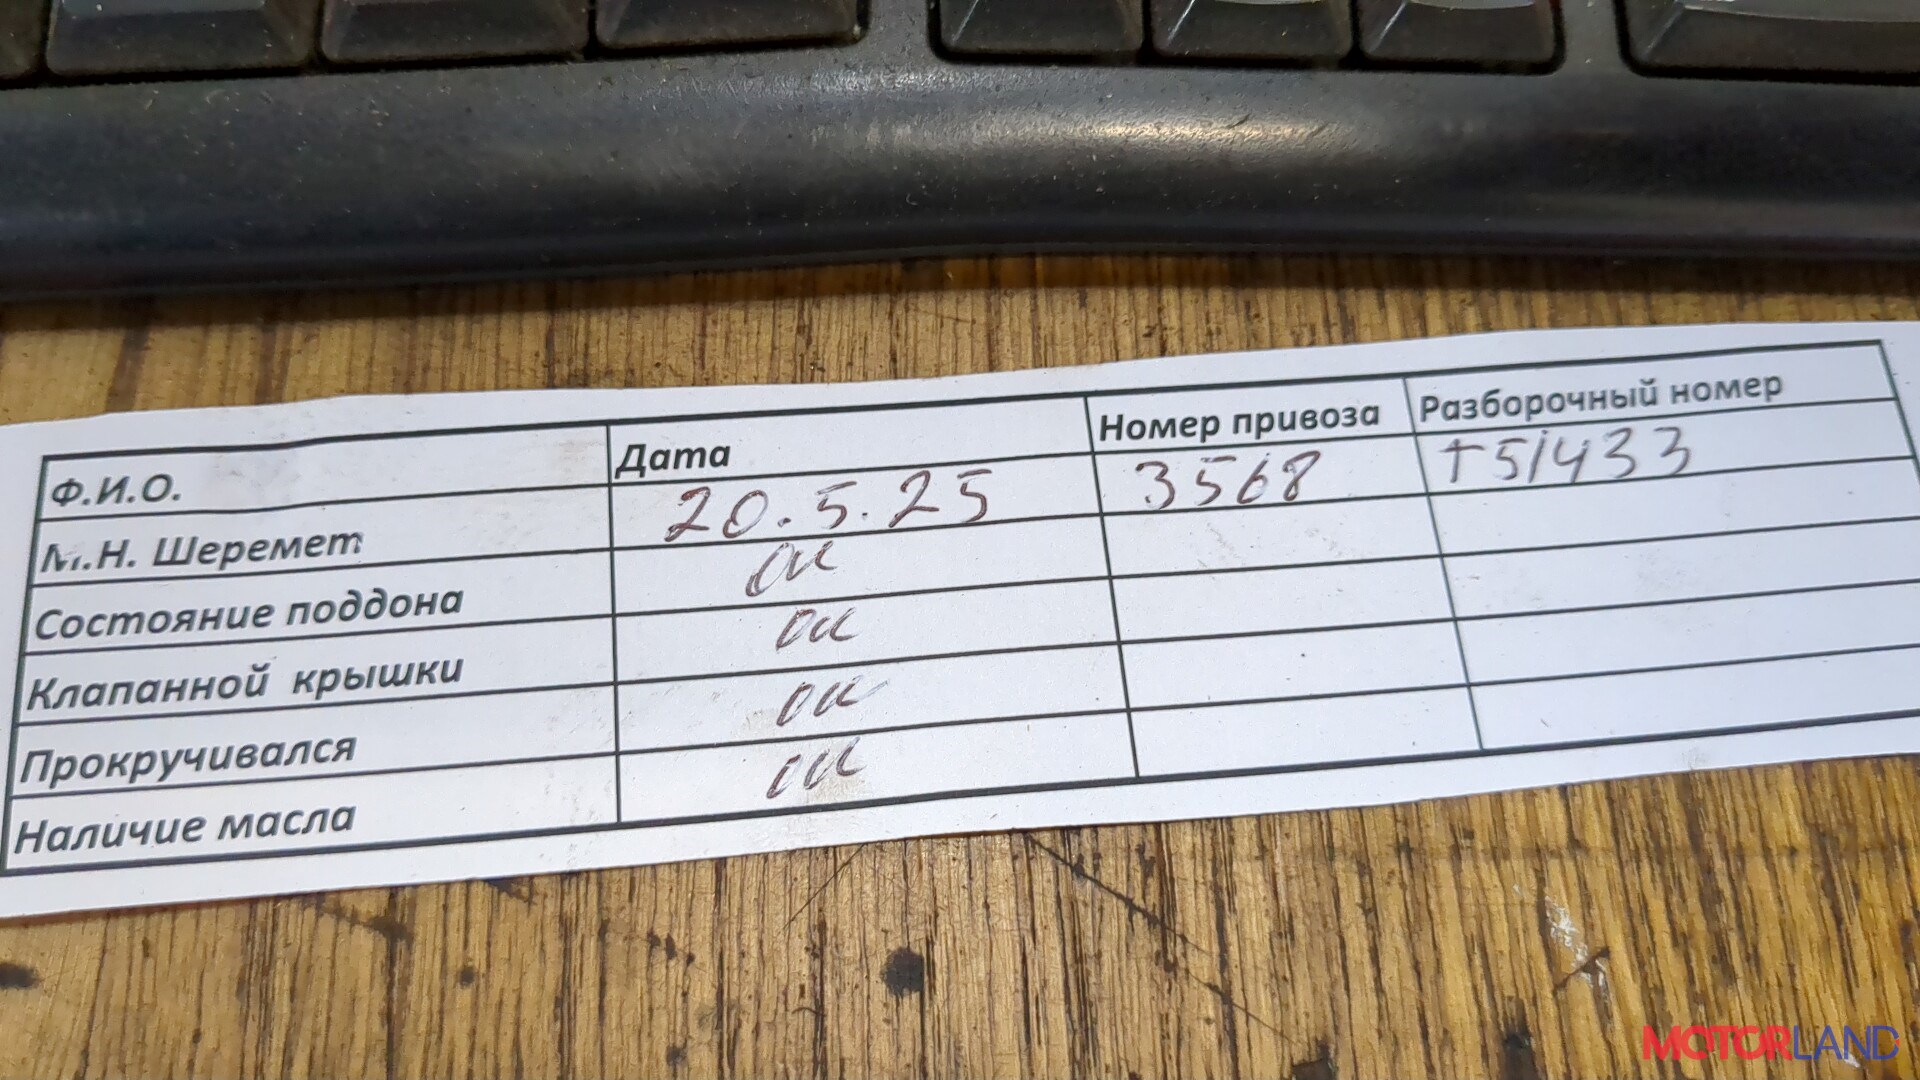 Ф.И.О. Дата Номер привоза Разборочный номер
М.Н. Шеремет 20.5.25 3568 T51433
Состояние поддона ок
Клапанной крышки ок
Прокручивался ок
Наличие масла ок
MOTORLAND